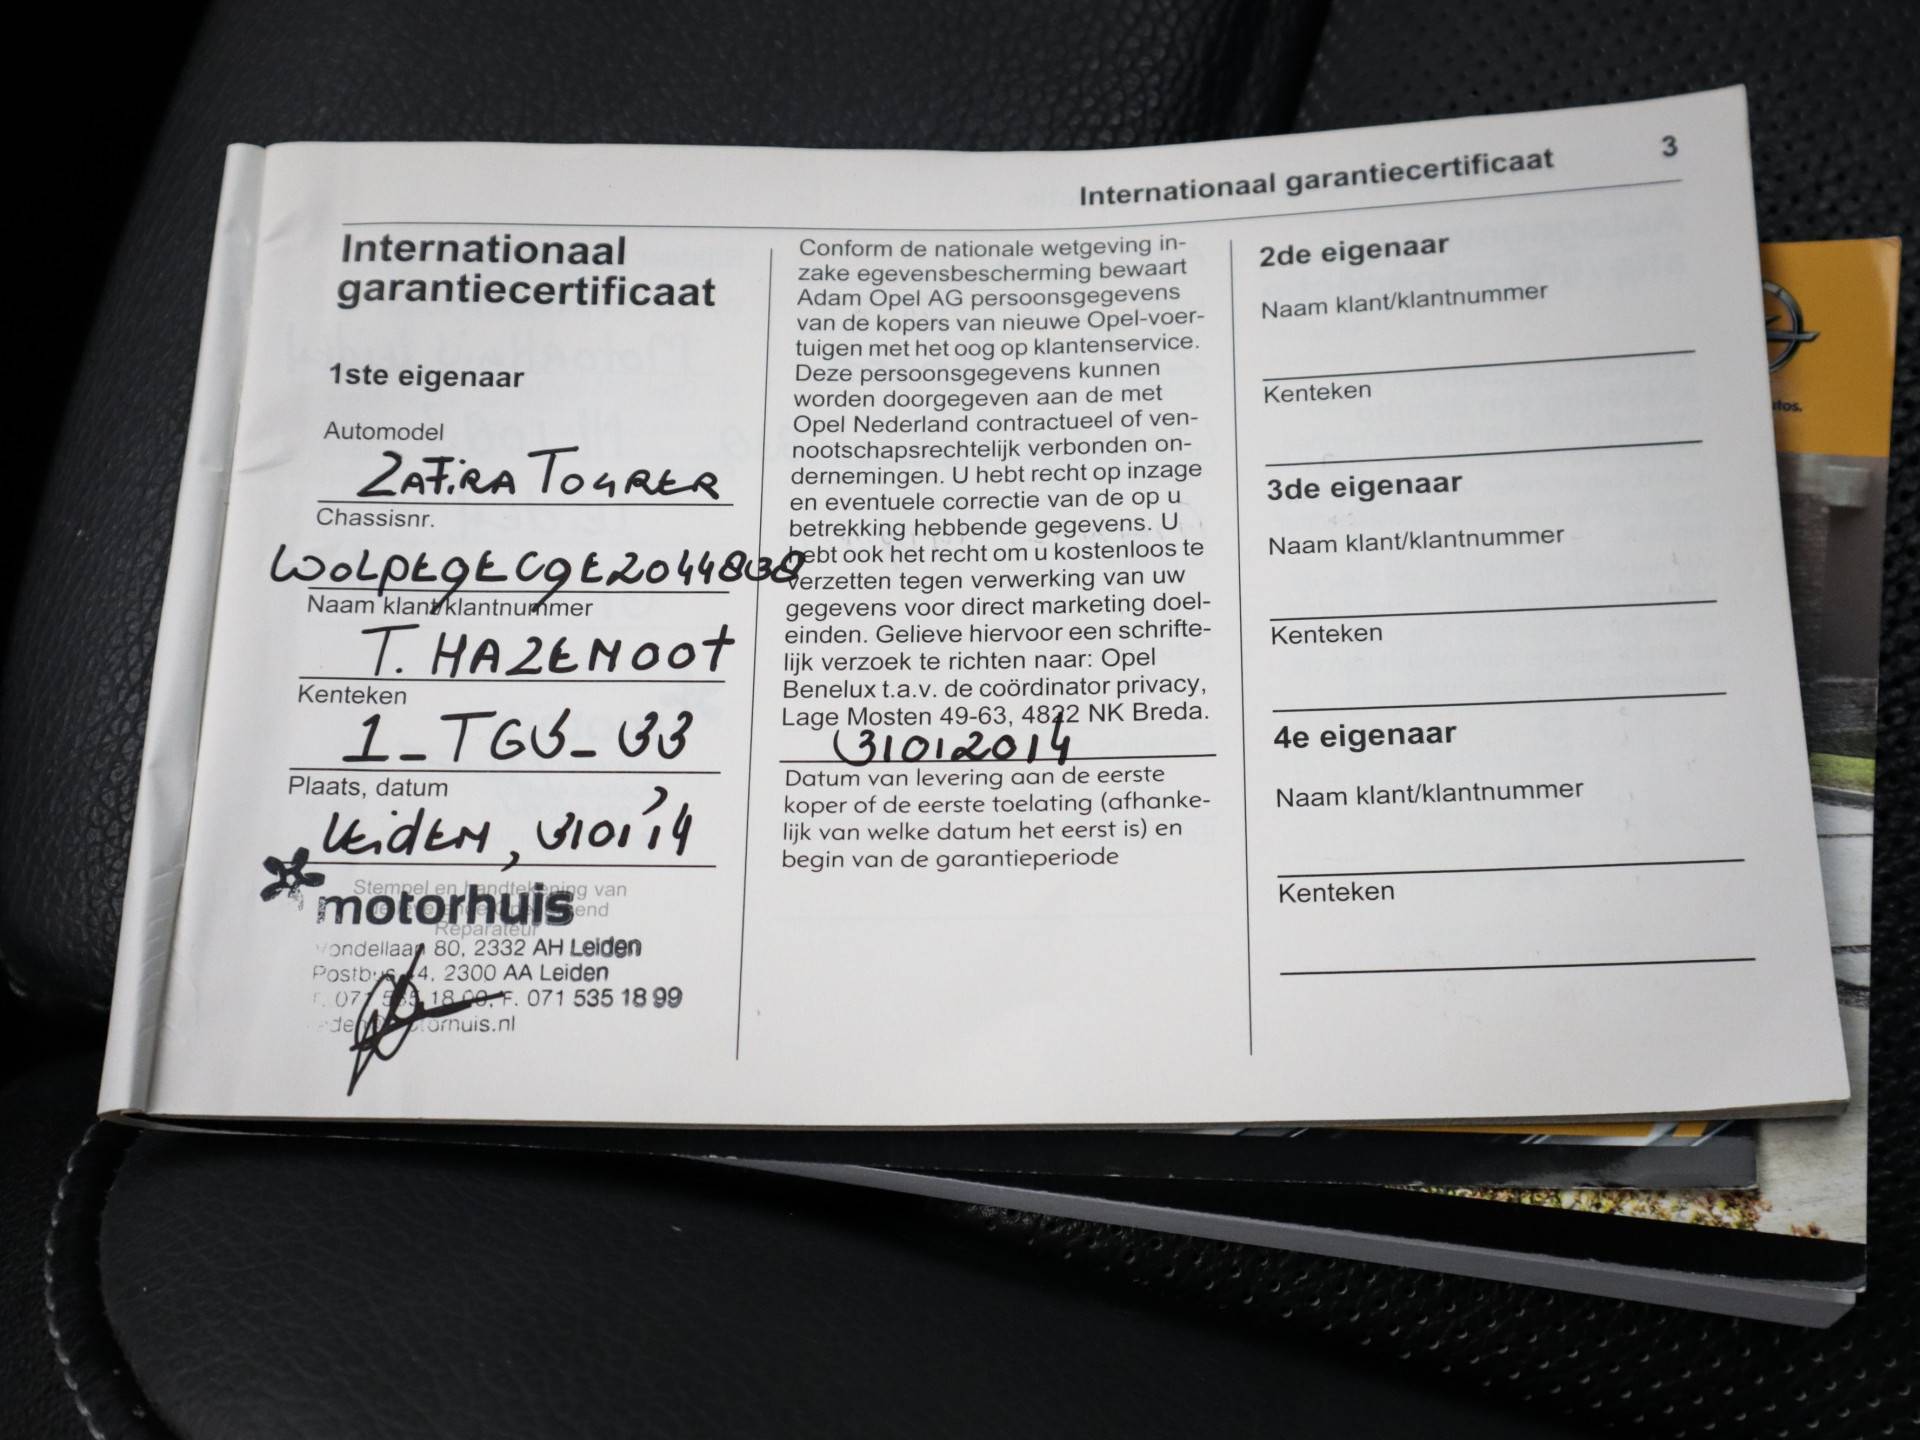 Internationaal garantiecertificaat 3
Internationaal
garantiecertificaat
1ste eigenaar
Automodel
ZAFIRA TOURER
Chassisnr.
W0LPE9EC9E2044838
Naam klant/klantnummer
T. HAZENOOT
Kenteken
1-TGS-33
Plaats, datum
LEIDEN, 3101'14
Stempel en handtekening van
Reparateur
motorhuis
Vondellaan 80, 2332 AH Leiden
2300 AA Leiden
F. 071 535 18 99
Conform de nationale wetgeving in-
zake egevensbescherming bewaart
Adam Opel AG persoonsgegevens
van de kopers van nieuwe Opel-voer-
tuigen met het oog op klantenservice.
Deze persoonsgegevens kunnen
worden doorgegeven aan de met
Opel Nederland contractueel of ven-
nootschapsrechtelijk verbonden on-
dernemingen. U hebt recht op inzage
en eventuele correctie van de op u
betrekking hebbende gegevens. U
hebt ook het recht om u kostenloos te
verzetten tegen verwerking van uw
gegevens voor direct marketing doel-
einden. Gelieve hiervoor een schrifte-
lijk verzoek te richten naar: Opel
Benelux t.a.v. de coördinator privacy,
Lage Mosten 49-63, 4822 NK Breda.
31012014
Datum van levering aan de eerste
koper of de eerste toelating (afhanke-
lijk van welke datum het eerst is) en
begin van de garantieperiode
2de eigenaar
Naam klant/klantnummer
Kenteken
3de eigenaar
Naam klant/klantnummer
Kenteken
4e eigenaar
Naam klant/klantnummer
Kenteken